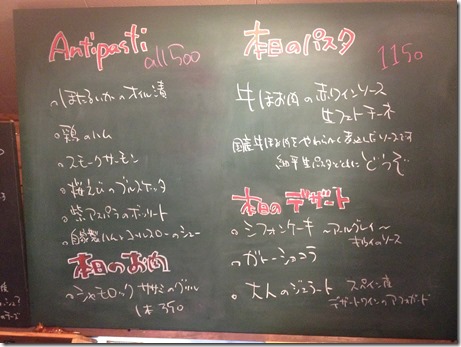 Antipasti
all 500
ほたるいかのオイル漬
鶏のハム
スモークサーモン
桜えびのブルスケッタ
紫アスパラのボッリート
自家製ハムとコールスローのシュー
本日のお肉
シャモロック ササミのグリル
1本 350
本日のパスタ
1150
牛ほお肉の赤ワインソース
生フェットチーネ
国産牛ほお肉をやわらかく煮込んだソースです
生パスタとともに どうぞ
本日のデザート
シフォンケーキ ～アールグレイ～
キウイのソース
ガトーショコラ
大人のジェラート スペイン産
デザートワインのアフォガード